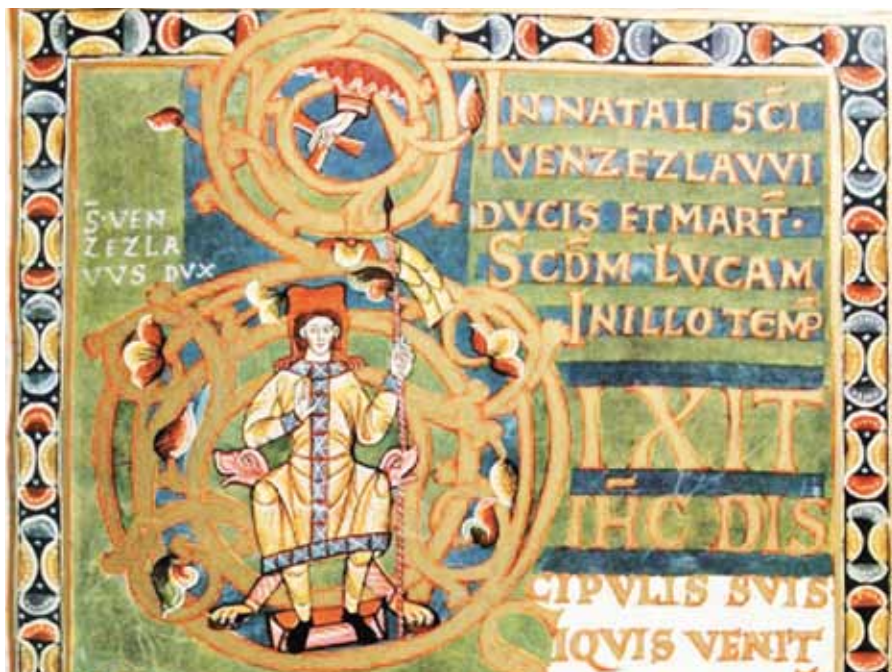 S̄·VEN
ZEZLA
VVS DVX
IN NATALI SC̄I
VENZEZLAVVI
DVCIS ET MART̄·
SCD̄M LVCAM
INILLO TEMP̄
IXIT
IH̄C DIS
CIPVLIS SVIS·
SIQVIS VENIT